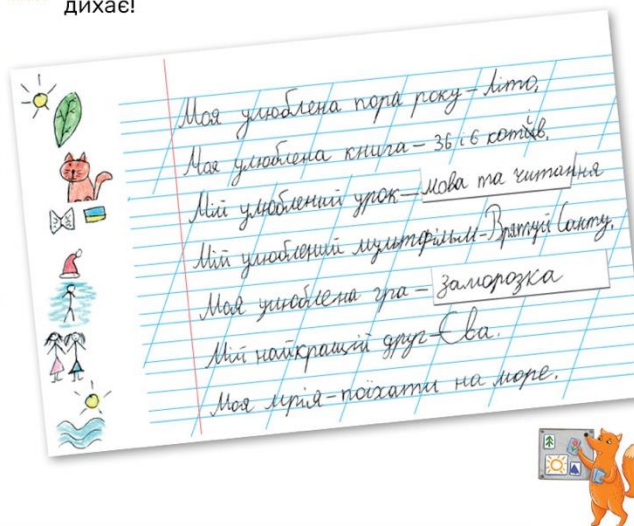 дихає!
Моя улюблена пора року – літо.
Моя улюблена книга – 36 і 6 котів.
Мій улюблений урок – мова та читання
Мій улюблений мультфільм – Врятуй Санту.
Моя улюблена гра – заморозка
Мій найкращий друг – Єва.
Моя мрія – поїхати на море.